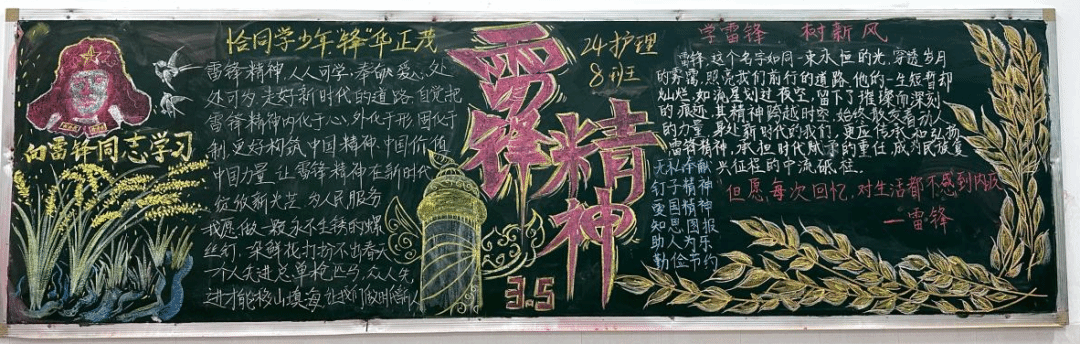 向雷锋同志学习
恰同学少年,"锋"华正茂
雷锋精神,人人可学;奉献爱心,处
处可为,走好新时代的道路,自觉把
雷锋精神内化于心,外化于形,固化于
制,更好构筑中国精神,中国价值
中国力量,让雷锋精神在新时代
绽放新光芒,为人民服务
我愿做一颗永不生锈的螺
丝钉,朵鲜花打扮不出春天
个人先进总单枪匹马,众人先
进才能移山填海,让我们做
雷锋精神
3.5
24护理
8班
学雷锋 树新风
雷锋,这个名字如同一束永恒的光,穿透岁月
的雾霭,照亮我们前行的道路,他的一生短暂却
灿烂,如流星划过夜空,留下了璀璨而深刻
的痕迹,其精神跨越时空,始终散发着动人
的力量,身处新时代的我们,更应传承和弘扬
雷锋精神,承担时代赋予的重任,成为民族复
兴征程的中流砥柱.
无私奉献
钉子精神
爱国精神
知恩图报
助人为乐
勤俭节约
但愿每次回忆,对生活都不感到内疚
—雷锋